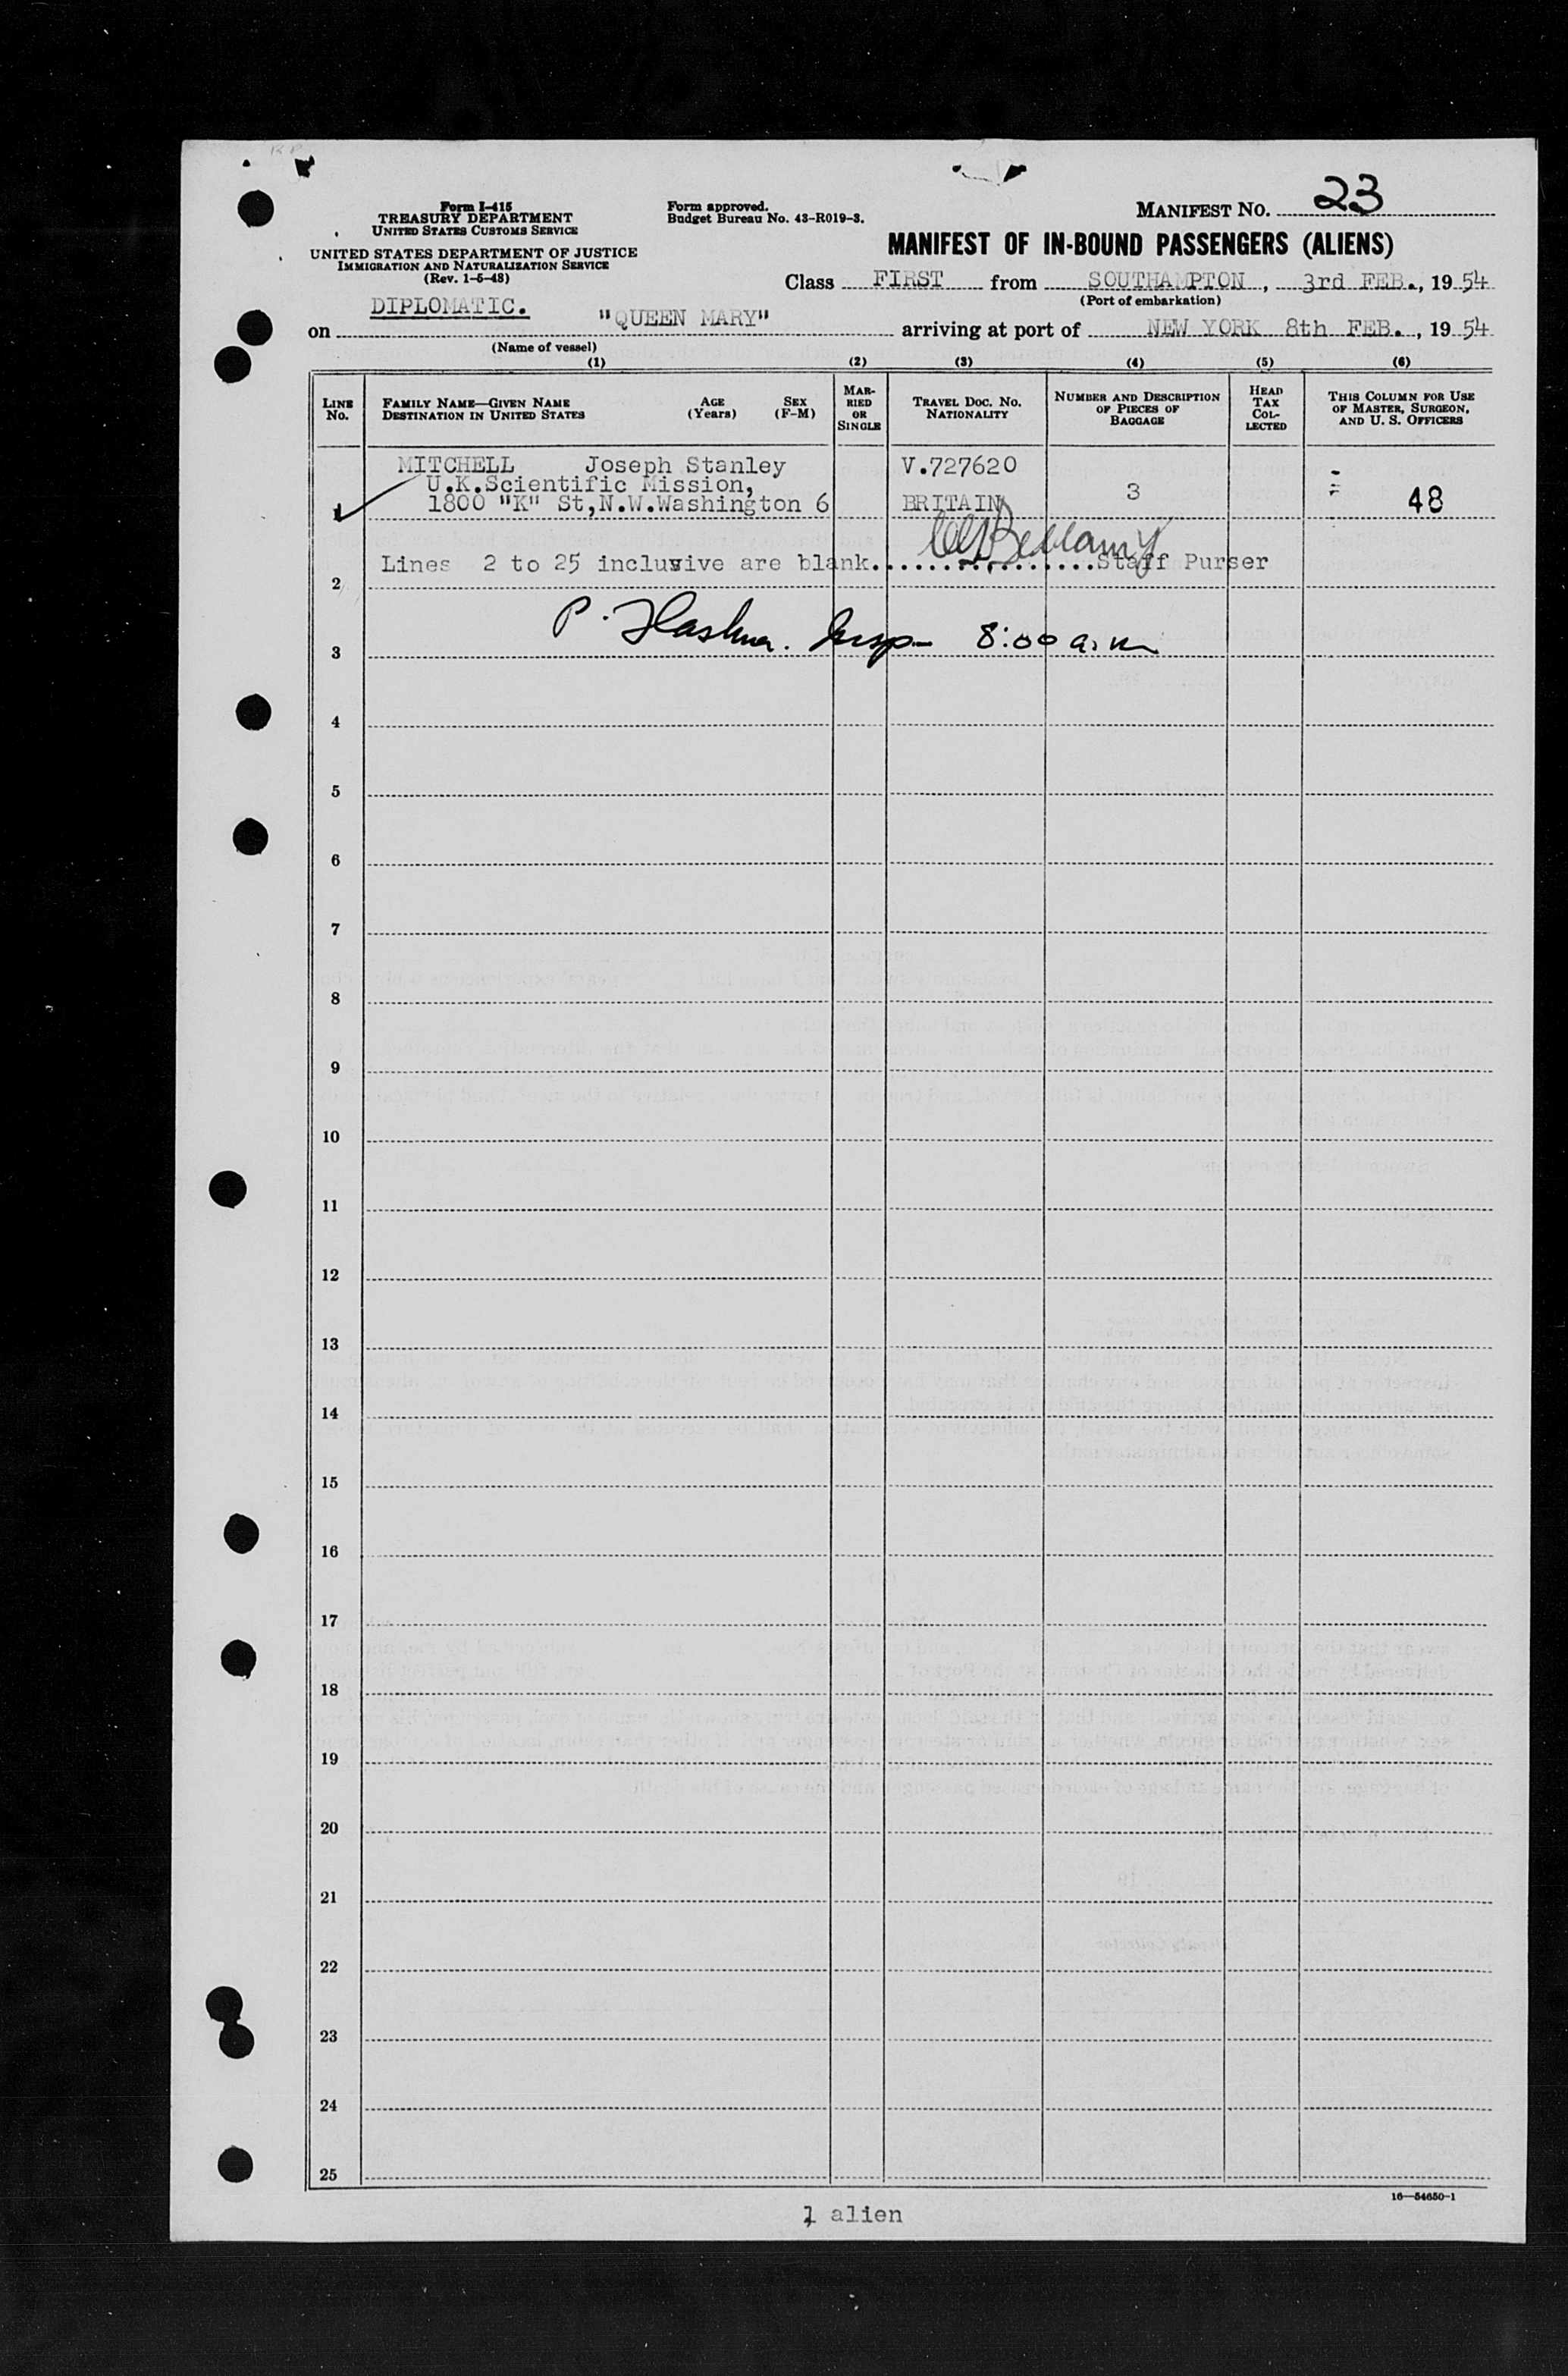 Form I-415
TREASURY DEPARTMENT
UNITED STATES CUSTOMS SERVICE
UNITED STATES DEPARTMENT OF JUSTICE
IMMIGRATION AND NATURALIZATION SERVICE
(Rev. 1-5-48)
Form approved.
Budget Bureau No. 43-R019-3.
MANIFEST NO. 23
MANIFEST OF IN-BOUND PASSENGERS (ALIENS)
Class FIRST from SOUTHAMPTON, 3rd FEB., 1954
(Port of embarkation)
DIPLOMATIC.
on "QUEEN MARY" arriving at port of NEW YORK 8th FEB., 1954
(Name of vessel)
(1) (2) (3) (4) (5) (6)
LINE No.
FAMILY NAME—GIVEN NAME
DESTINATION IN UNITED STATES
AGE (Years)
SEX (F-M)
MARRIED OR SINGLE
TRAVEL DOC. NO. NATIONALITY
NUMBER AND DESCRIPTION OF PIECES OF BAGGAGE
HEAD TAX COLLECTED
THIS COLUMN FOR USE OF MASTER, SURGEON, AND U. S. OFFICERS
MITCHELL Joseph Stanley V.727620
U.K.Scientific Mission,
1 1800 "K" St,N.W.Washington 6 BRITAIN 3 48
Lines 2 to 25 inclusive are blank. Bellamy Staff Purser
2
P. Insp 8:00 a.m
3
4
5
6
7
8
9
10
11
12
13
14
15
16
17
18
19
20
21
22
23
24
25
16—54650-1
1 alien